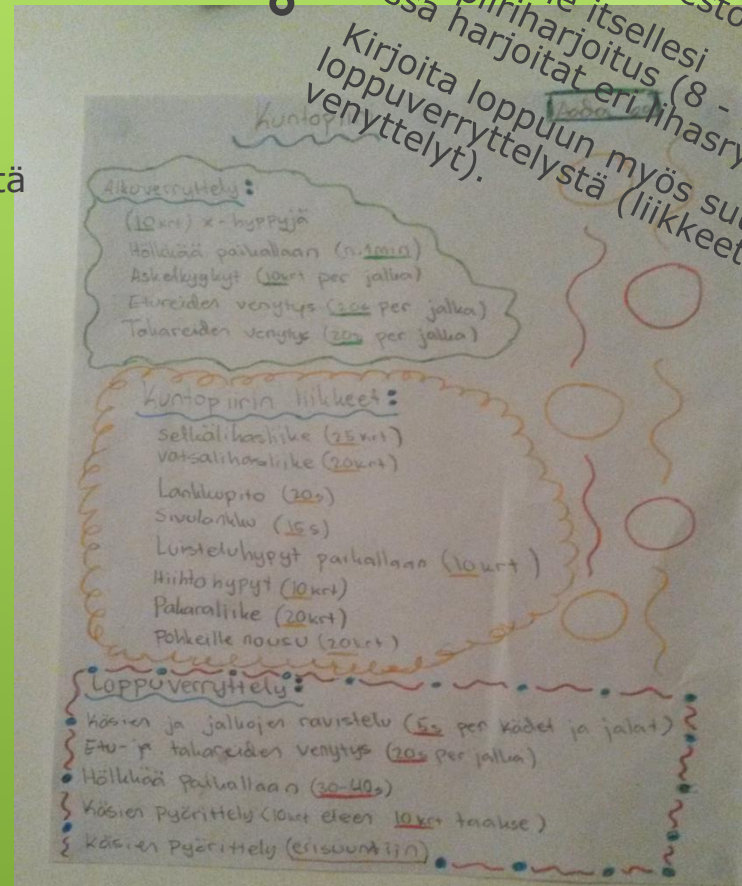 itsellesi
harjoitus (8 -
harjoitat eri lihasry
Kirjoita loppuun myös suu
loppuverryttelystä (liikkeet
venyttelyt).
tä
Alkuverryttely:
(10krt) x-hyppyjä
Hölkkää paikallaan (n.1min)
Askelkyykyt (10krt per jalka)
Etureiden venytys (20s per jalka)
Takareiden venytys (20s per jalka)
Kuntopiirin liikkeet:
Selkälihasliike (25krt)
vatsalihasliike (20krt)
Lankkupito (20s)
Sivulankku (15s)
Luisteluhypyt paikallaan (10krt)
Hiihtohypyt (10krt)
Pakaraliike (20krt)
Pohkeille nousu (20krt)
Loppuverryttely:
Käsien ja jalkojen ravistelu (5s per kädet ja jalat)
Etu- ja takareiden venytys (20s per jalka)
Hölkkää paikallaan (30-40s)
Käsien pyörittely (10krt eteen 10krt taakse)
Käsien pyörittely (erisuuntiin)